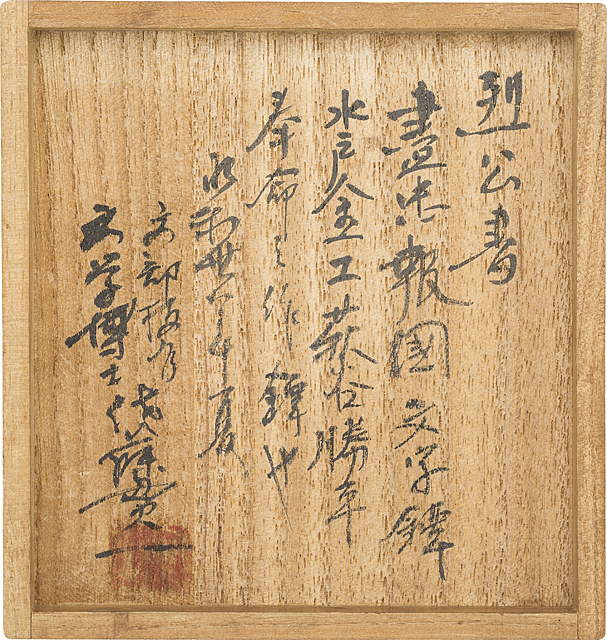 烈公書
盡忠報國文字鐔
水戸金工萩谷勝平
奉命之作鐔也
昭和卅年夏
文部技官
文学博士佐藤貫一